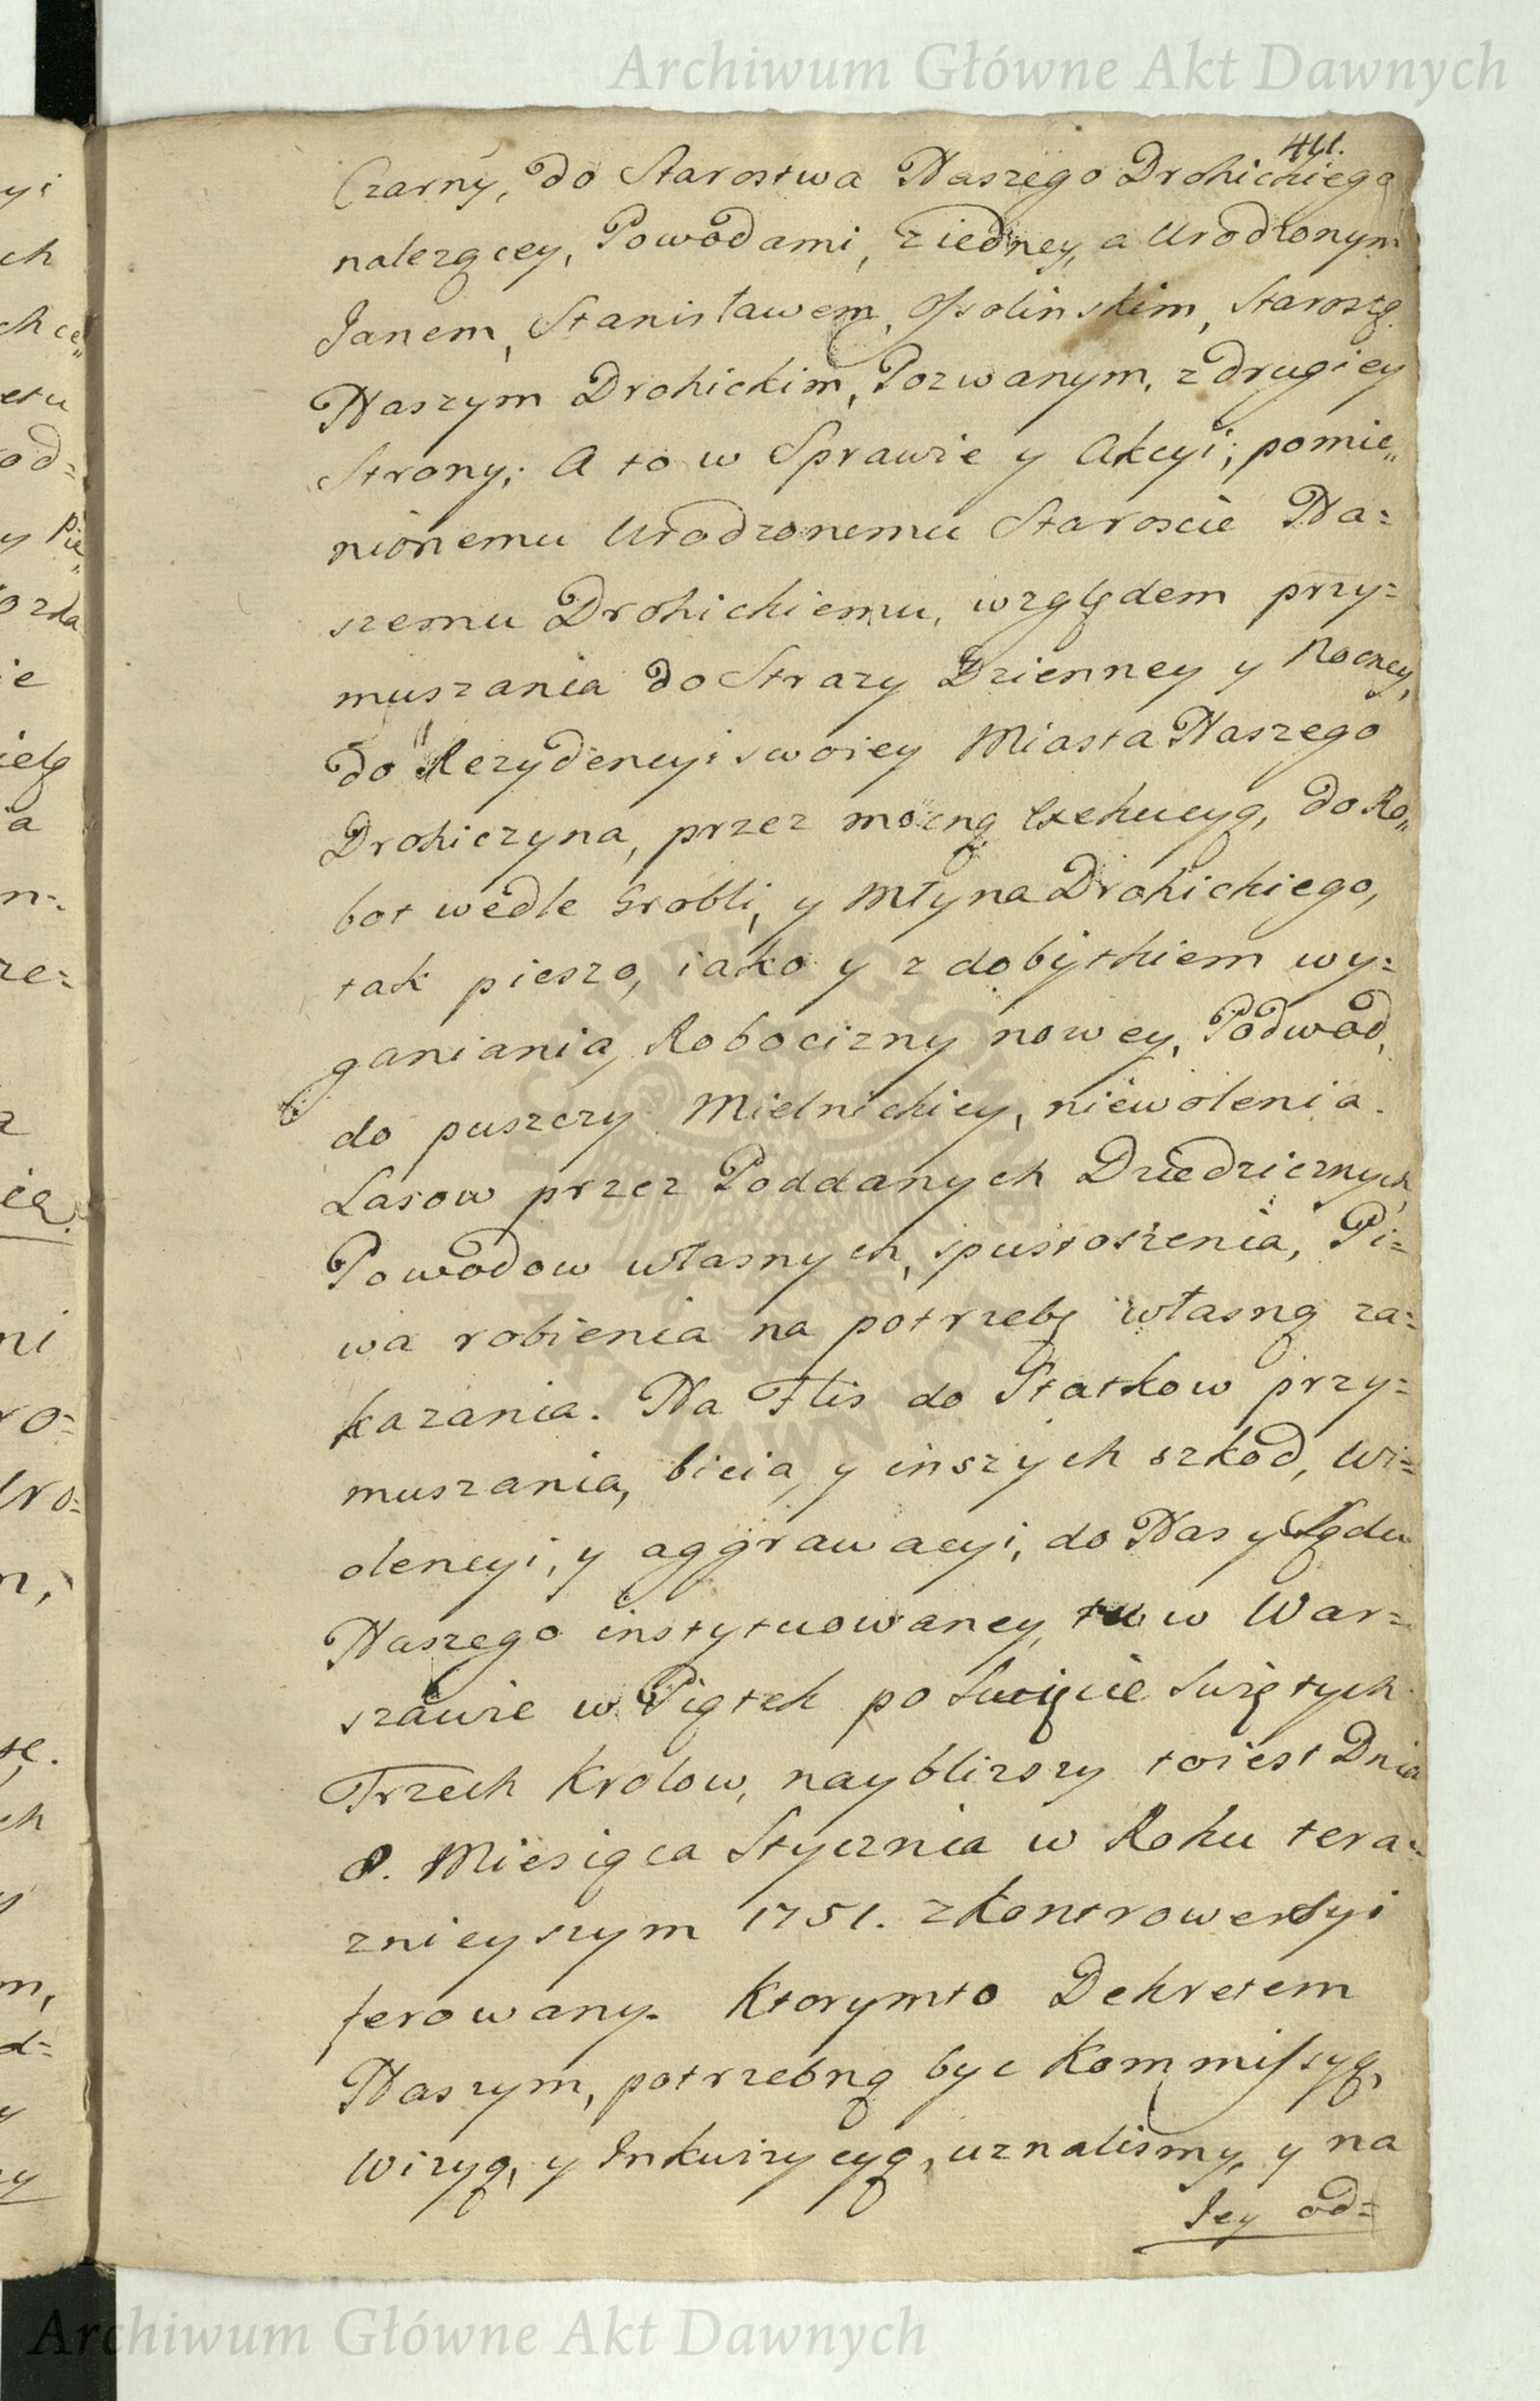 Archiwum Główne Akt Dawnych
411.
Czarny, do Starostwa Naszego Drohickiego
nalezącey, Powodami, ziedney, a Urodzonym
Janem, Stanisławem, Ossolinskim, Starostą
Naszym Drohickim, Pozwanym, zdrugiey
Strony; A to w Sprawie y Akcyi; pomie„
nionemu Urodzonemu Staroscie Na=
szemu Drohickiemu, względem przy=
muszania do Strazy Dzienney y Nocney,
do Rezydencyi swoiey Miasta Naszego
Drohiczyna, przez mocną Exekucyą, do Ro„
bot wedle Grobli, y Młyna Drohickiego,
tak pieszo, iako y z dobytkiem wy=
ganiania, Robocizny nowey, Podwod,
do puszczy Mielnickiey, niewolenia.
Lasow przez Poddanych Dziedzicznych,
Powodow własnych, spustoszenia, Pi=
wa robienia na potrzebę własną za=
kazania. Na Flis do Statkow przy=
muszania, bicia, y inszych szkod, Wi=
olencyi, y aggrawacyi, do Nas y Sądu
Naszego instytuowaney, tu w War=
szawie w Piątek po Swięcie Swiętych
Trzech Krolow, nayblizszy toiest Dnia
8. Miesiąca Stycznia w Roku tera=
znieyszym 1751. z Kontrowersyi
ferowany. Ktorymto Dekretem
Naszym, potrzebną byc Kommissyą,
Wizyą, y Inkwizycyą, uznalismy, y na
Jey od=
Archiwum Główne Akt Dawnych